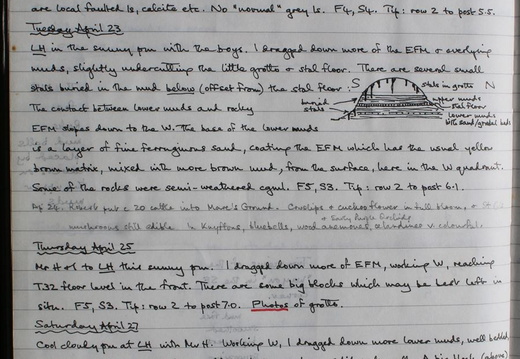 are local faulted ls, calcite etc. No "normal" grey ls. F4, S4. Tip: row 2 to post 5.5.
Tuesday April 23
LH in the sunny pm with the boys. I dragged down more of the EFM & overlying
muds, slightly undercutting the little grotto & stal floor. There are several small
stals buried in the mud below (offset from) the stal floor:
S
stals in grotto
N
buried
stals
upper muds
stal floor
lower muds
The contact between lower muds and rocky
EFM slopes down to the W. The base of the lower muds
is a layer of fine ferruginous sand, coating the EFM which has the usual yellow
brown matrix, mixed with more brown mud, from the surface, here in the W quadrant.
Some of the rocks were semi-weathered cgml. F5, S3. Tip: row 2 to post 6.1.
Robert put c 20 cattle into Mare's Ground. Cowslips & cuckoo flower in full bloom, &
& Early Purple Orchids
mushrooms still edible. bluebells, wood anemones, & v. colourful.
Thursday April 25
Mr H & I to LH this sunny pm. I dragged down more of EFM, working W, reaching
T32 floor level in the front. There are some big blocks which may be best left in
situ. F5, S3. Tip: row 2 to post 7.0. Photos of grotto.
Saturday April 27
Cool cloudy pm at LH with Mr H. Working W, I dragged down more lower muds, well bedded,